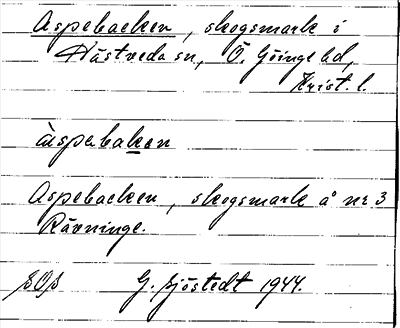 Aspebacken, skogsmark i
Hästveda sn, Ö. Göinge hd,
Krist. l.
àspəbakən
Aspebacken, skogsmark å nr 3
Rävninge.
SOS G. Sjöstedt 1944.